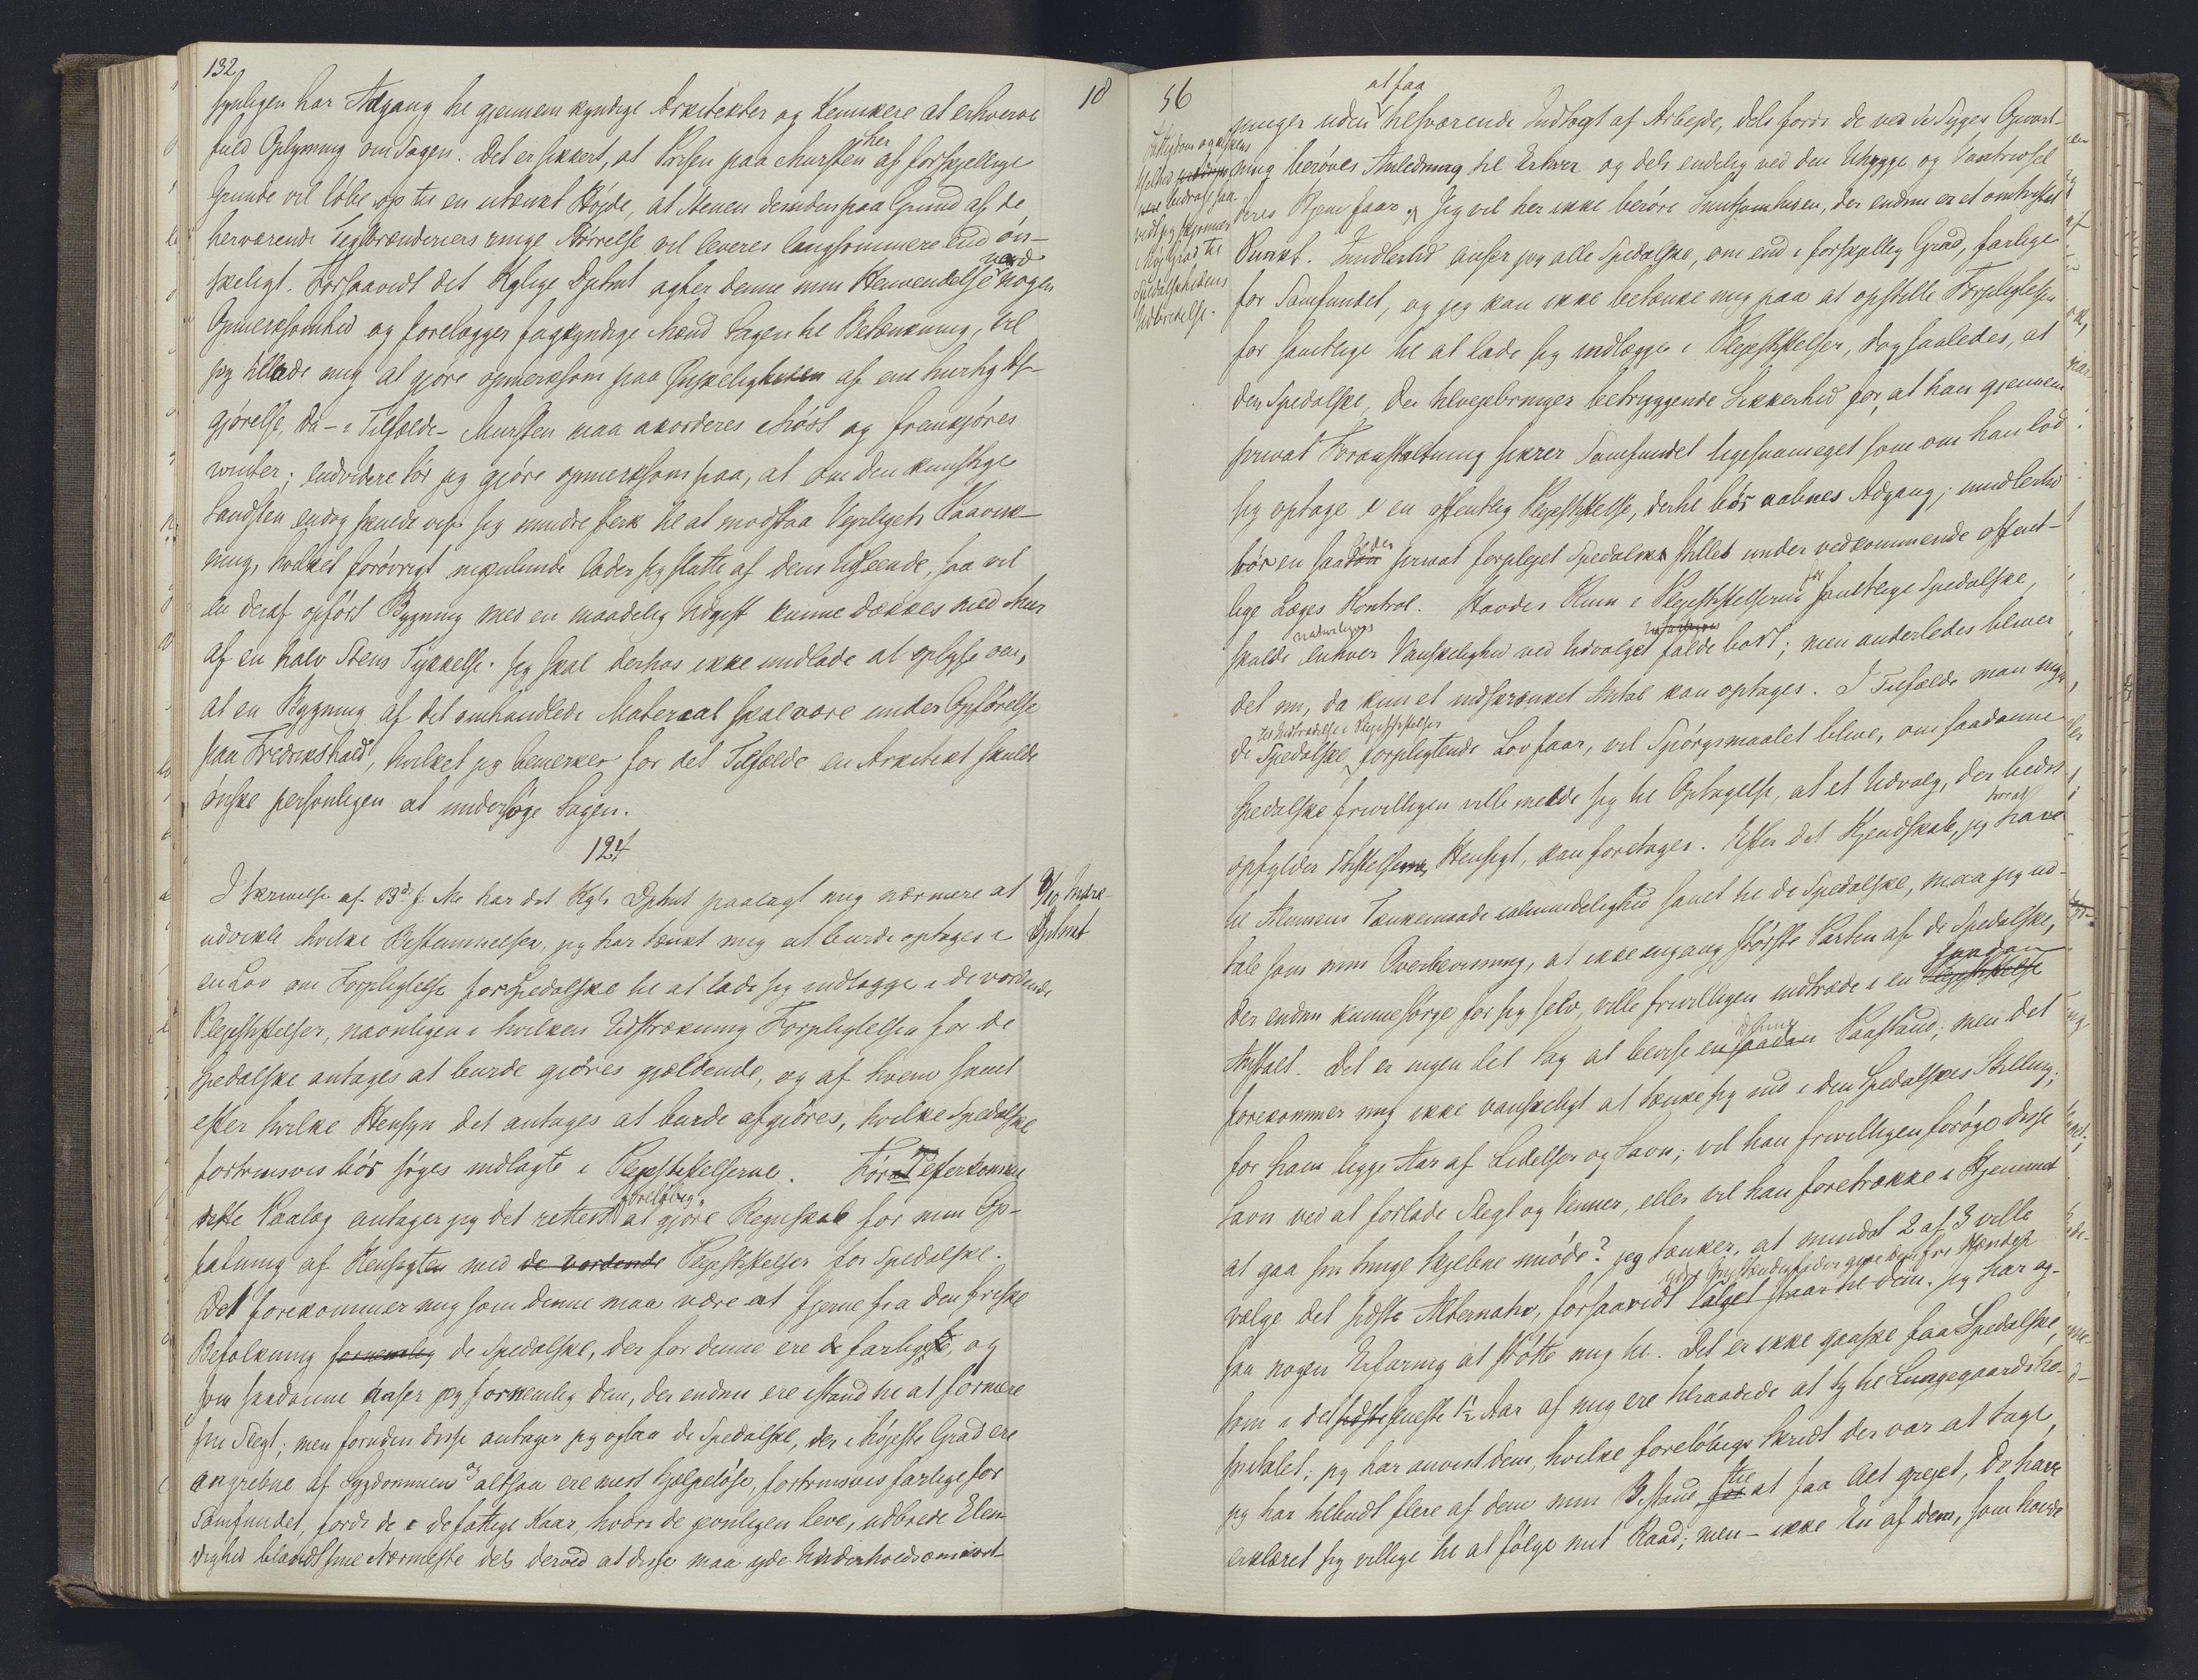 132
synligen har Adgang til gjennem kyndige Arkitekter og Kemikere at erhverve
fuld Oplysning om Sagen. Det er sikkert, at Prisen paa Mursten her af forskjellige
Grunde vil løbe op til en utænkt Højde, at Stenen desuden paa Grund af de
herværende Teglbrænderiers ringe Størrelse vil leveres langsommere end øn-
skeligt. Forsaavidt det Kglige Dptmt agter denne min Henvendelse værd nogen
Opmerksomhed og forelægger fagkyndige Mænd Sagen til Betænkning, vil
jeg tillade mig at gjøre opmerksom paa Ønskeligheden af en hurtig Af-
gjørelse, da - i Tilfælde - Mursten maa akorderes i Høst og fremkjøres
i Vinter; endvidere bør jeg gjøre opmerksom paa, at om den kunstige
Sandsten endog skulde vise sig mindre sterk til at modstaa Vejrligets Paavirk-
ning, hvilket forøvrigt ingenlunde lader sig slutte af dens Udseende, saa vil
en deraf opført Bygning med en maadelig Udgift kunne dækkes med Mur
af en halv Stens Tykkelse. Jeg skal derhos ikke undlade at oplyse om,
at en Bygning af det omhandlede Materiaal skal være under Opførelse
paa Fredrikshald, hvilket jeg bemerker for det Tilfælde en Arkitekt skulde
ønske personligen at undersøge Sagen.
124
I Skrivelse af 13de f. M. har det Kgl. Dptmt paalagt mig nærmere at
udvikle hvilke Bestemmelser, jeg har tænkt mig at burde optages i
en Lov om Forpligtelse for Spedalske til at lade sig indlægge i de vordende
Plejestiftelser, navnligen i hvilken Udstrækning Forpligtelsen for de
Spedalske antages at burde gjøres gjældende, og af hvem samt
efter hvilke Hensyn det antages at burde afgjøres, hvilke Spedalske
fortrinsvis bør søges indlagte i Plejestiftelserne. Før jeg efterkommer
dette Paalæg antager jeg det rettest foreløbig at gjøre Regnskab for min Op-
fatning af Hensigten med de vordende Plejestiftelser for Spedalske.
Det forekommer mig som denne maa være at fjerne fra den friske
Befolkning fornemlig de Spedalske, der for denne ere de farligste, og
som saadanne anser jeg fornemlig dem, der endnu ere istand til at formere
sin Slegt; men foruden disse antager jeg ogsaa de Spedalske, der i højeste Grad ere
angrebne af Sygdommen og altsaa ere mest hjælpeløse, fortrinsvis farlige for
Samfundet, fordi de i de fattige Kaar, hvori de jevnligen leve, udbrede Elen-
dighed blandt sine Nærmeste dels derved at disse maa yde Underholdsomkost-
18
Indre-
Dptmt
56
ninger uden at faa tilsvarende Indtægt af Arbejde, dels fordi de ved de Syges Opvart-
ning berøves Anledning til Erhverv og dels endelig ved den Uhygge og Vantrivsel
deres Hjem faar. Jeg vil her ikke berøre Smitsomheden, der endnu er et omtvistet
Punkt. Imidlertid anser jeg alle Spedalske, om end i forskjellig Grad, farlige
for Samfundet, og jeg kan ikke betænke mig paa at opstille Forpligtelsen
for samtlige til at lade sig indlægge i Plejestiftelser, dog saaledes, at
den Spedalske, der tilvejebringer betryggende Sikkerhed for, at han gjennem
privat Foranstaltning sikrer Samfundet ligesaameget som om han lod
sig optage i en offentlig Plejestiftelse, dertil bør aabnes Adgang; imidlertid
bør en saadan privat forplejet Spedalsk stilles under vedkommende offent-
lige Læges Kontrol. Havdes Rum i Plejestiftelserne for samtlige Spedalske,
skulde naturligvis enhver Vanskelighed ved Udvalget falde bort; men anderledes bliver
det nu, da kun et indskrænket Antal kan optages. I Tilfælde man ingen
de Spedalske til Indtrædelse i Plejestiftelser forpligtende Lov faar, vil Spørgsmaalet blive, om saadanne
Spedalske frivilligen ville melde sig til Optagelse, at et Udvalg, der bedst
opfylder Stiftelsens Hensigt, kan foretages. Efter det Kjendskab, jeg tror at have
til Almuens Tænkemaade i Almindelighed samt til de Spedalske, maa jeg ud-
tale som min Overbevisning, at ikke engang største Parten af de Spedalske,
der endnu kunne sørge for sig selv, ville frivilligen indtræde i en saadan Plejestiftelse
Anstalt. Det er ingen let Sag at bevise en saadan Paastand; men det
forekommer mig ikke vanskeligt at tænke sig ind i den Spedalskes Stilling;
for ham ligge Aar af Lidelser og Savn; vil han frivilligen forøge disse
Savn ved at forlade Slegt og Venner, eller vil han foretrække i Hjemmet
at gaa sin tunge Skjebne imøde? jeg tænker, at mindst 2 af 3 ville
vælge det sidste Alternativ, forsaavidt Valget staar til dem. Jeg har og-
saa nogen Erfaring at støtte mig til. Det er ikke ganske faa Spedalske,
som i det sidste seneste 1½ Aar af mig ere tilraadede at ty til Lungegaardsho-
spitalet; jeg har anvist dem, hvilke foreløbige Skridt der var at tage,
jeg har tilbudt flere af dem min Bistand for til at faa Alt grejet, de have
erklæret sig villige til at følge mit Raad; men - ikke En af dem, som havde
Fattigdom og
Udbredelse.